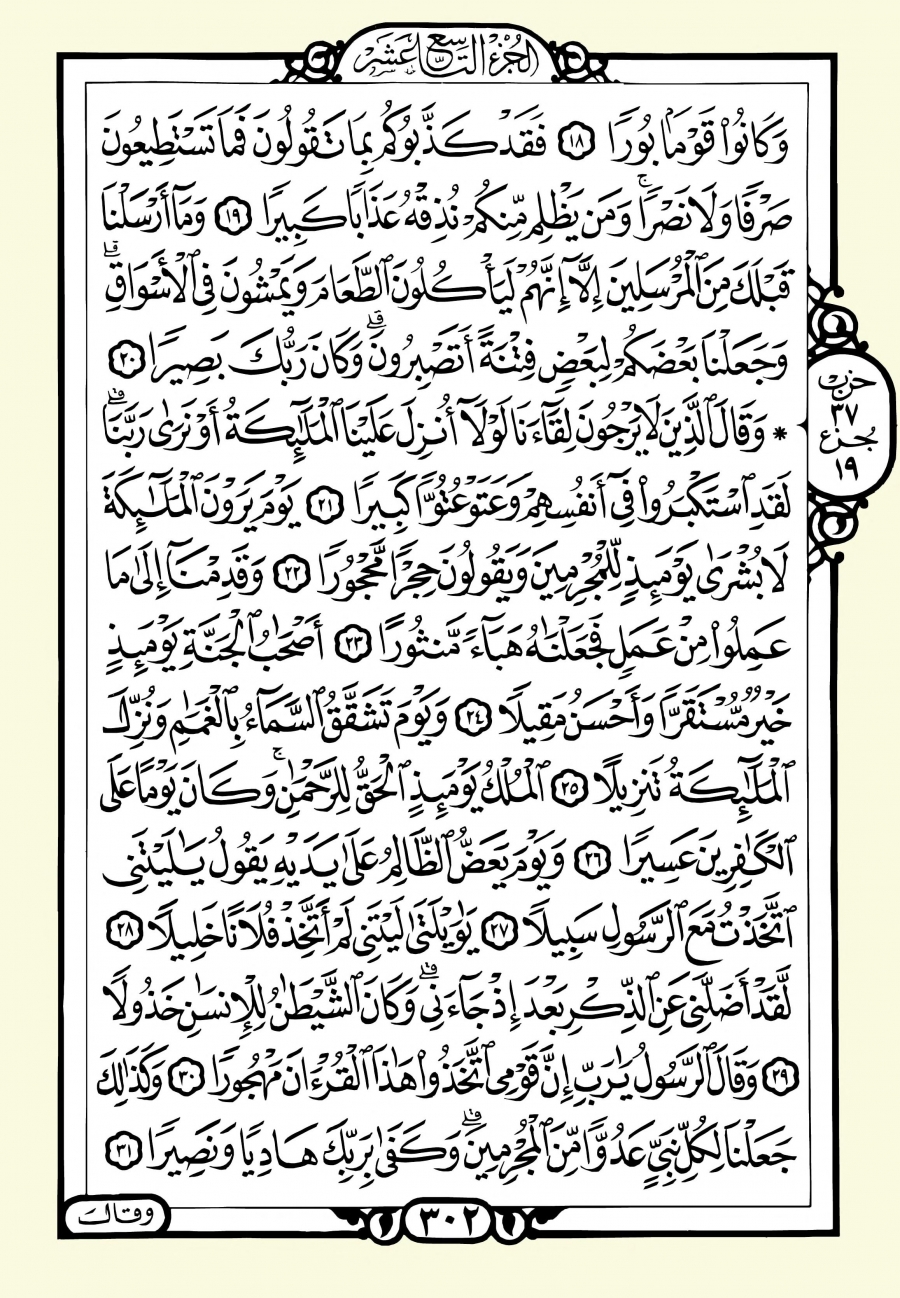 الجزء التاسع عشر
وَكَانُوا۟ قَوْمَۢا بُورًا ١٨ فَقَدْ كَذَّبُوكُم بِمَا تَقُولُونَ فَمَا تَسْتَطِيعُونَ
صَرْفًا وَلَا نَصْرًا ۚ وَمَن يَظْلِم مِّنكُمْ نُذِقْهُ عَذَابًا كَبِيرًا ١٩ وَمَآ أَرْسَلْنَا
قَبْلَكَ مِنَ ٱلْمُرْسَلِينَ إِلَّآ إِنَّهُمْ لَيَأْكُلُونَ ٱلطَّعَامَ وَيَمْشُونَ فِى ٱلْأَسْوَاقِ ۗ
وَجَعَلْنَا بَعْضَكُمْ لِبَعْضٍ فِتْنَةً أَتَصْبِرُونَ ۗ وَكَانَ رَبُّكَ بَصِيرًا ٢٠
* وَقَالَ ٱلَّذِينَ لَا يَرْجُونَ لِقَآءَنَا لَوْلَآ أُنزِلَ عَلَيْنَا ٱلْمَلَٰٓئِكَةُ أَوْ نَرَىٰ رَبَّنَا ۗ
لَقَدِ ٱسْتَكْبَرُوا۟ فِىٓ أَنفُسِهِمْ وَعَتَوْ عُتُوًّا كَبِيرًا ٢١ يَوْمَ يَرَوْنَ ٱلْمَلَٰٓئِكَةَ
لَا بُشْرَىٰ يَوْمَئِذٍ لِّلْمُجْرِمِينَ وَيَقُولُونَ حِجْرًا مَّحْجُورًا ٢٢ وَقَدِمْنَآ إِلَىٰ مَا
عَمِلُوا۟ مِنْ عَمَلٍ فَجَعَلْنَٰهُ هَبَآءً مَّنثُورًا ٢٣ أَصْحَٰبُ ٱلْجَنَّةِ يَوْمَئِذٍ
خَيْرٌ مُّسْتَقَرًّا وَأَحْسَنُ مَقِيلًا ٢٤ وَيَوْمَ تَشَقَّقُ ٱلسَّمَآءُ بِٱلْغَمَٰمِ وَنُزِّلَ
ٱلْمَلَٰٓئِكَةُ تَنزِيلًا ٢٥ ٱلْمُلْكُ يَوْمَئِذٍ ٱلْحَقُّ لِلرَّحْمَٰنِ ۚ وَكَانَ يَوْمًا عَلَى
ٱلْكَٰفِرِينَ عَسِيرًا ٢٦ وَيَوْمَ يَعَضُّ ٱلظَّالِمُ عَلَىٰ يَدَيْهِ يَقُولُ يَٰلَيْتَنِى
ٱتَّخَذْتُ مَعَ ٱلرَّسُولِ سَبِيلًا ٢٧ يَٰوَيْلَتَىٰ لَيْتَنِى لَمْ أَتَّخِذْ فُلَانًا خَلِيلًا ٢٨
لَّقَدْ أَضَلَّنِى عَنِ ٱلذِّكْرِ بَعْدَ إِذْ جَآءَنِى ۗ وَكَانَ ٱلشَّيْطَٰنُ لِلْإِنسَٰنِ خَذُولًا
٢٩ وَقَالَ ٱلرَّسُولُ يَٰرَبِّ إِنَّ قَوْمِى ٱتَّخَذُوا۟ هَٰذَا ٱلْقُرْءَانَ مَهْجُورًا ٣٠ وَكَذَٰلِكَ
جَعَلْنَا لِكُلِّ نَبِىٍّ عَدُوًّا مِّنَ ٱلْمُجْرِمِينَ ۗ وَكَفَىٰ بِرَبِّكَ هَادِيًا وَنَصِيرًا ٣١
حزب
٣٧
جزء
١٩
٣٠٢
وقال